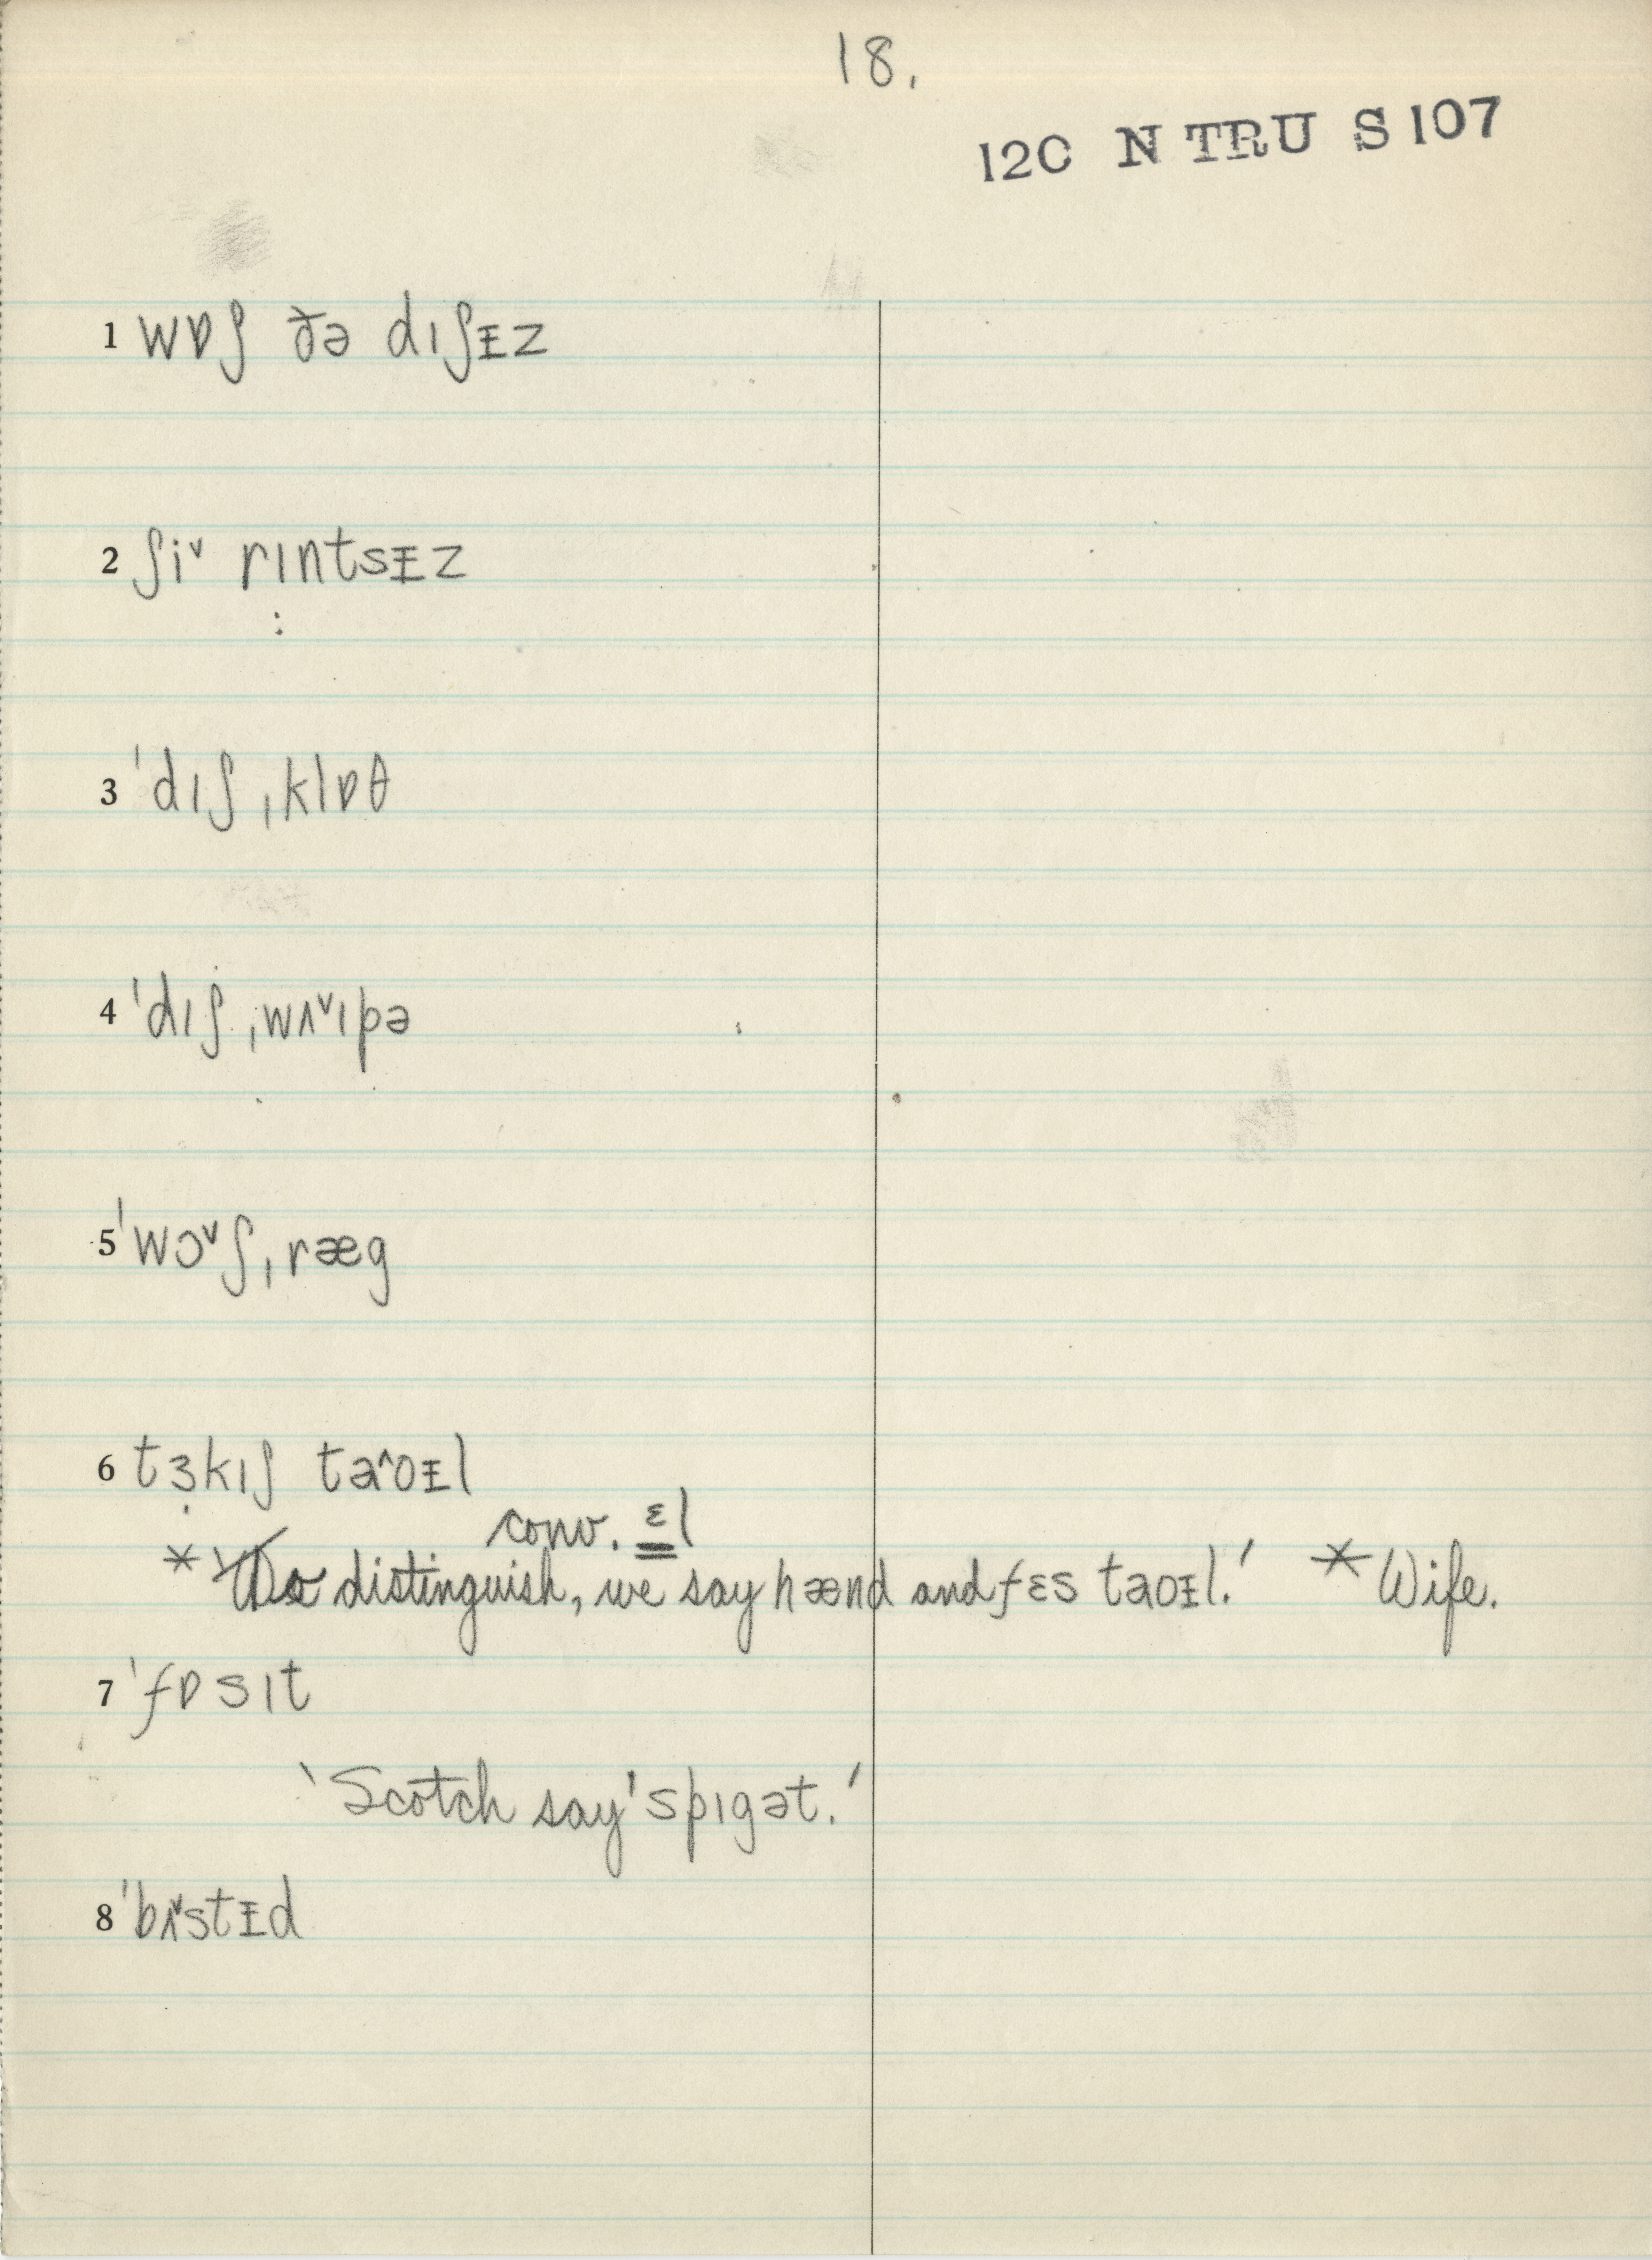 18.
12C N TRU S 107
1 wɒʃ ðə dɪʃᵻz
2 ʃi˅ rɪntsᵻz
3 ˈdɪʃˌklɒθ
4 ˈdɪʃˌwʌ˅ɪpə
5 ˈwɔ˅ʃˌræg
6 tɜkɪʃ ta˄oᵻl
conv. ɛl
* ‘To distinguish, we say hænd and fɛs taoᵻl.’ * Wife.
7 ˈfɒsɪt
‘Scotch say ˈspɪgət.’
8 ˈbʌ˅stᵻd